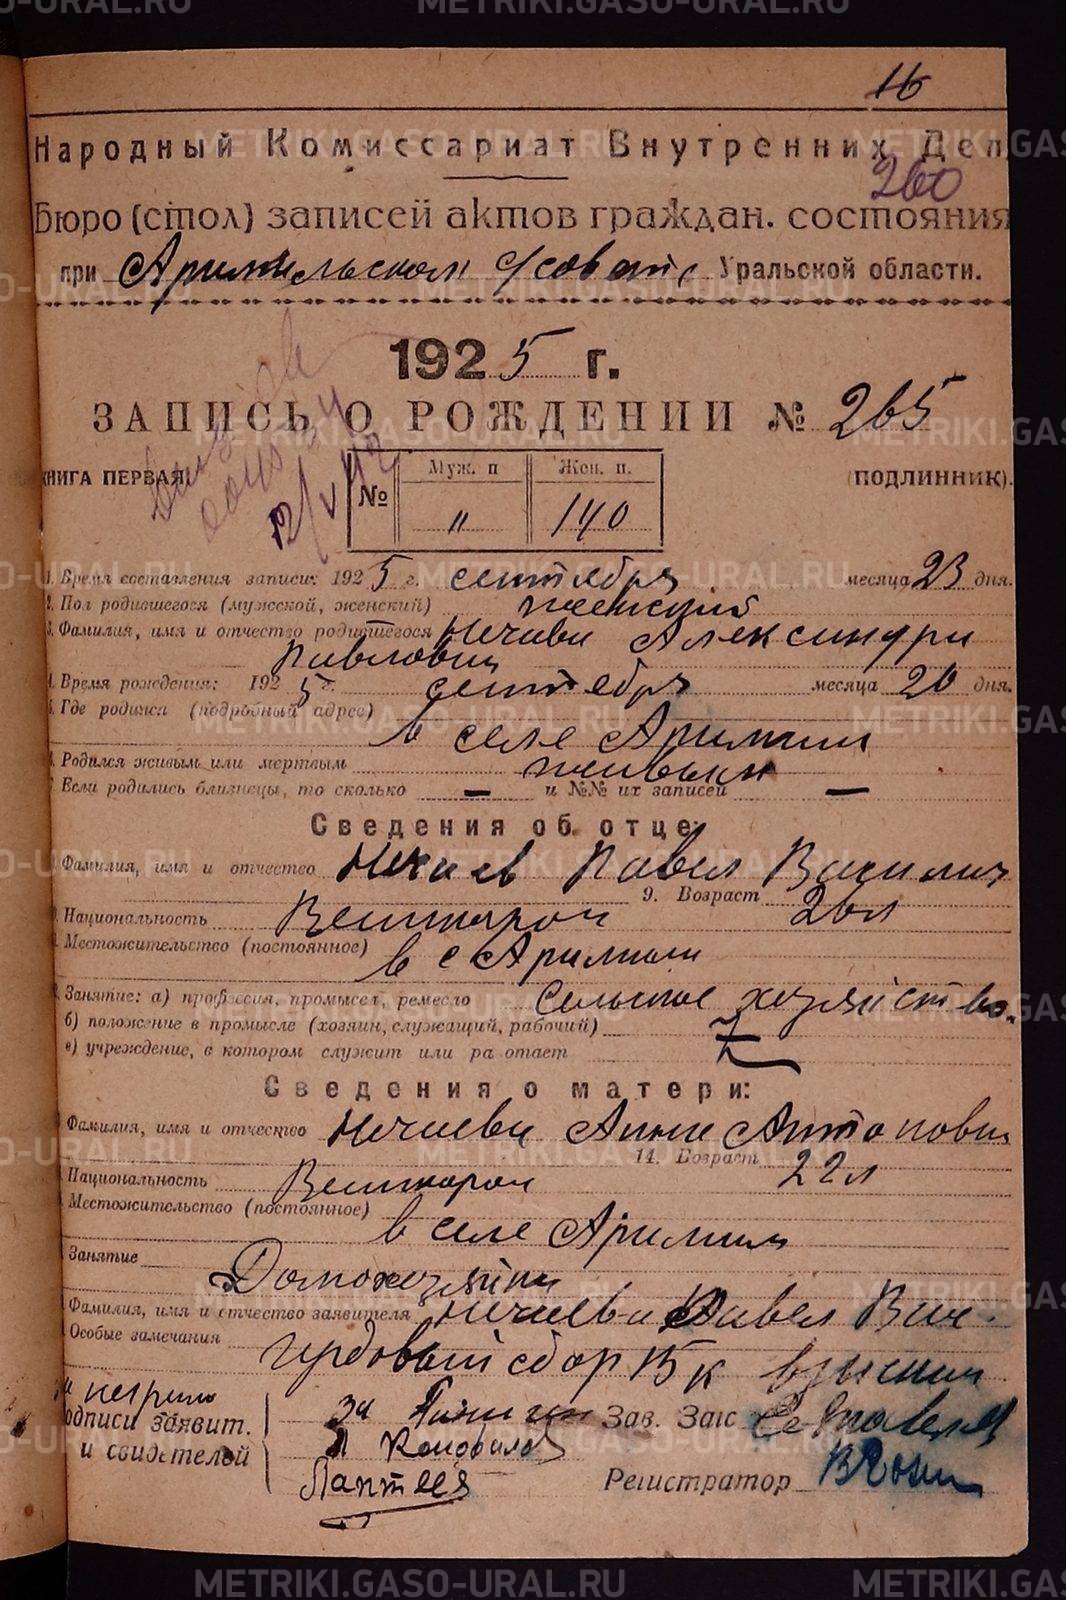 16
Народный Комиссариат Внутренних Дел
260
Бюро (стол) записей актов граждан. состояния
при Арамильском с/совете Уральской области.
1925 г.
ЗАПИСЬ О РОЖДЕНИИ № 265
КНИГА ПЕРВАЯ
(ПОДЛИННИК).
№ Муж. п Жен. п.
" 140
12/V
1. Время составления записи: 1925 г. сентября месяца 23 дня.
2. Пол родившегося (мужской, женский) женский
3. Фамилия, имя и отчество родившегося Нечаева Александра
Павловна
4. Время рождения: 1925 г. сентября месяца 20 дня.
5. Где родился (подробный адрес)
в селе Арамили
6. Родился живым или мертвым живым
7. Если родились близнецы, то сколько — и №№ их записей —
Сведения об отце:
Фамилия, имя и отчество Нечаев Павел Василич
9. Возраст 26 л
Национальность Великорос
Местожительство (постоянное)
в с Арамили
Занятие: а) профессия, промысел, ремесло сельское хозяйство.
б) положение в промысле (хозяин, служащий, рабочий)
в) учреждение, в котором служит или ра отает
Сведения о матери:
Фамилия, имя и отчество Нечаева Анна Антоновна
14. Возраст 22 л
Национальность Великорос
Местожительство (постоянное)
в селе Арамили
Занятие
Домохозяйка
Фамилия, имя и отчество заявителя Нечаев Павел Вас.
Особые замечания
гербовый сбор 15 к взыскан
За неграм
одписи заявит.
и свидетелей
За
Коновалов
Лаптев
Зав. Загс
Регистратор
METRIKI.GASO-URAL.RU